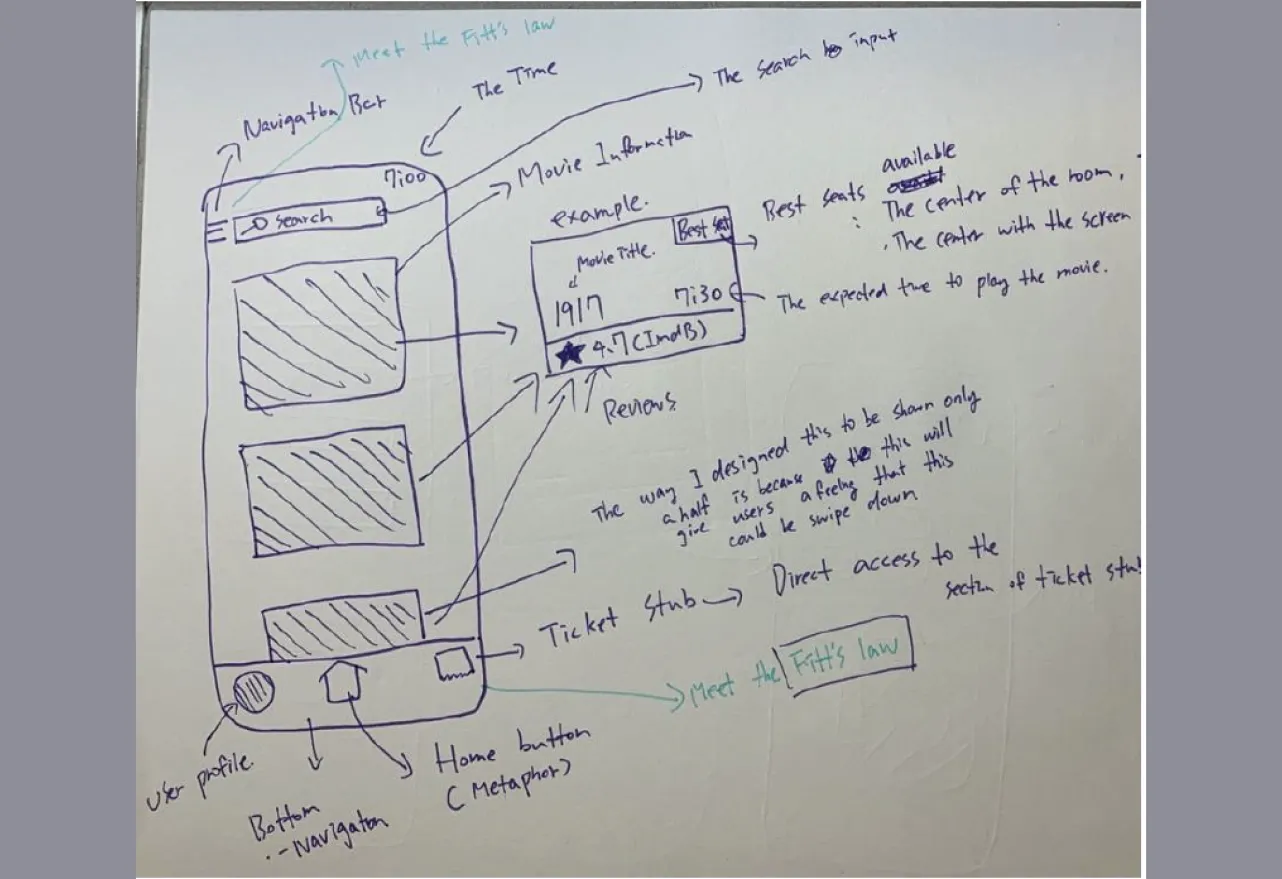 Meet the Fitt's law
Navigation Bar
The Time
The search input
7:00
search
Movie Information
example.
Best seat
Movie Title.
1917
7:30
4.7 (ImdB)
Reviews
Best seats available
: The center of the room,
, The center with the screen
The expected time to play the movie.
The way I designed this to be shown only
a half is because this will
give users a feeling that this
could be swipe down
Ticket stub → Direct access to the
section of ticket stub
Meet the Fitt's law
User profile
Bottom
-Navigation
Home button
(Metaphor)